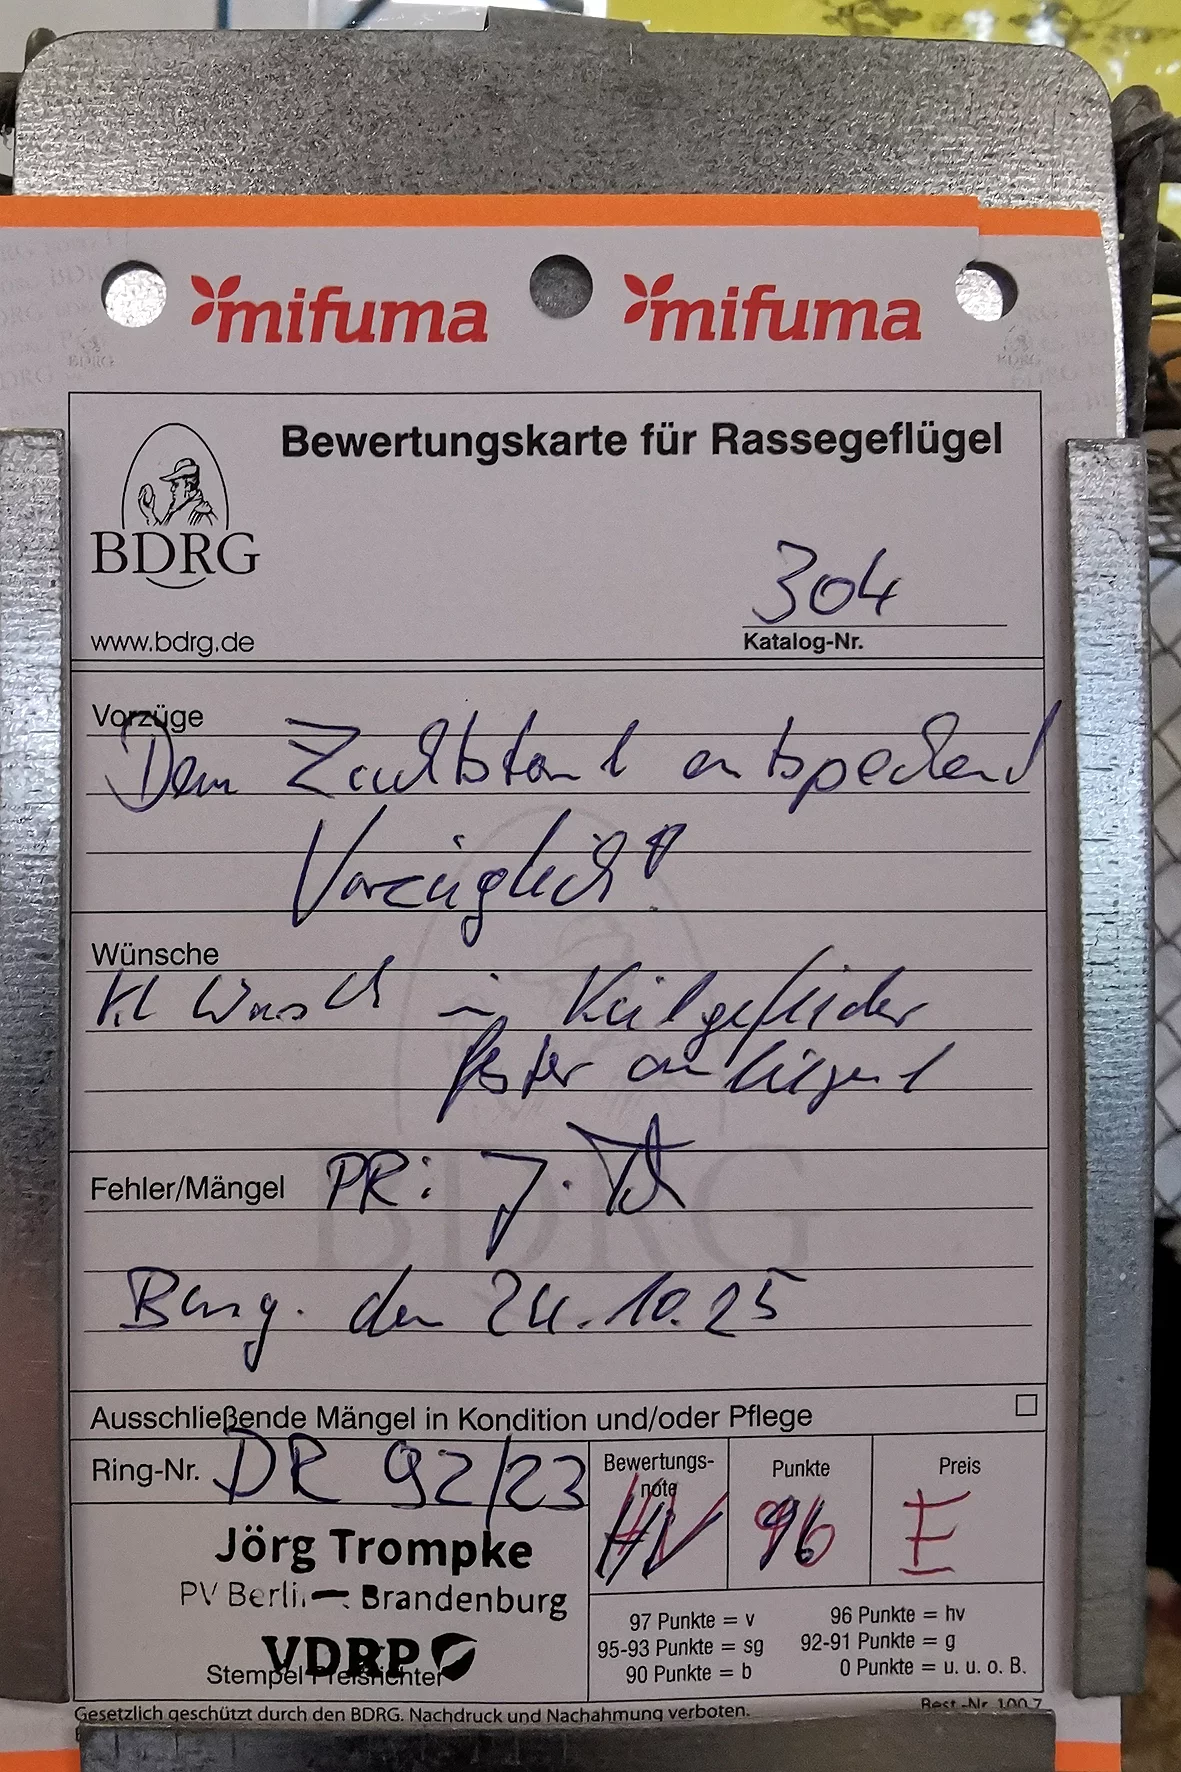 mifuma mifuma
Bewertungskarte für Rassegeflügel
BDRG
304
www.bdrg.de
Katalog-Nr.
Vorzüge
Dem Zuchtstand entsprechend
Vorzüglich!
Wünsche
Kl Wunsch im Keilgefieder
fester anliegend
Fehler/Mängel PR: J.
den 24.10.25
Ausschließende Mängel in Kondition und/oder Pflege
Ring-Nr. DR 92/23
Bewertungs-
note
HV
Punkte
96
Preis
E
Jörg Trompke
PV Berlin - Brandenburg
VDRP
Stempel Preisrichter
97 Punkte = v
96 Punkte = hv
95-93 Punkte = sg
92-91 Punkte = g
90 Punkte = b
0 Punkte = u. u. o. B.
Gesetzlich geschützt durch den BDRG. Nachdruck und Nachahmung verboten.
Best.-Nr. 100.7